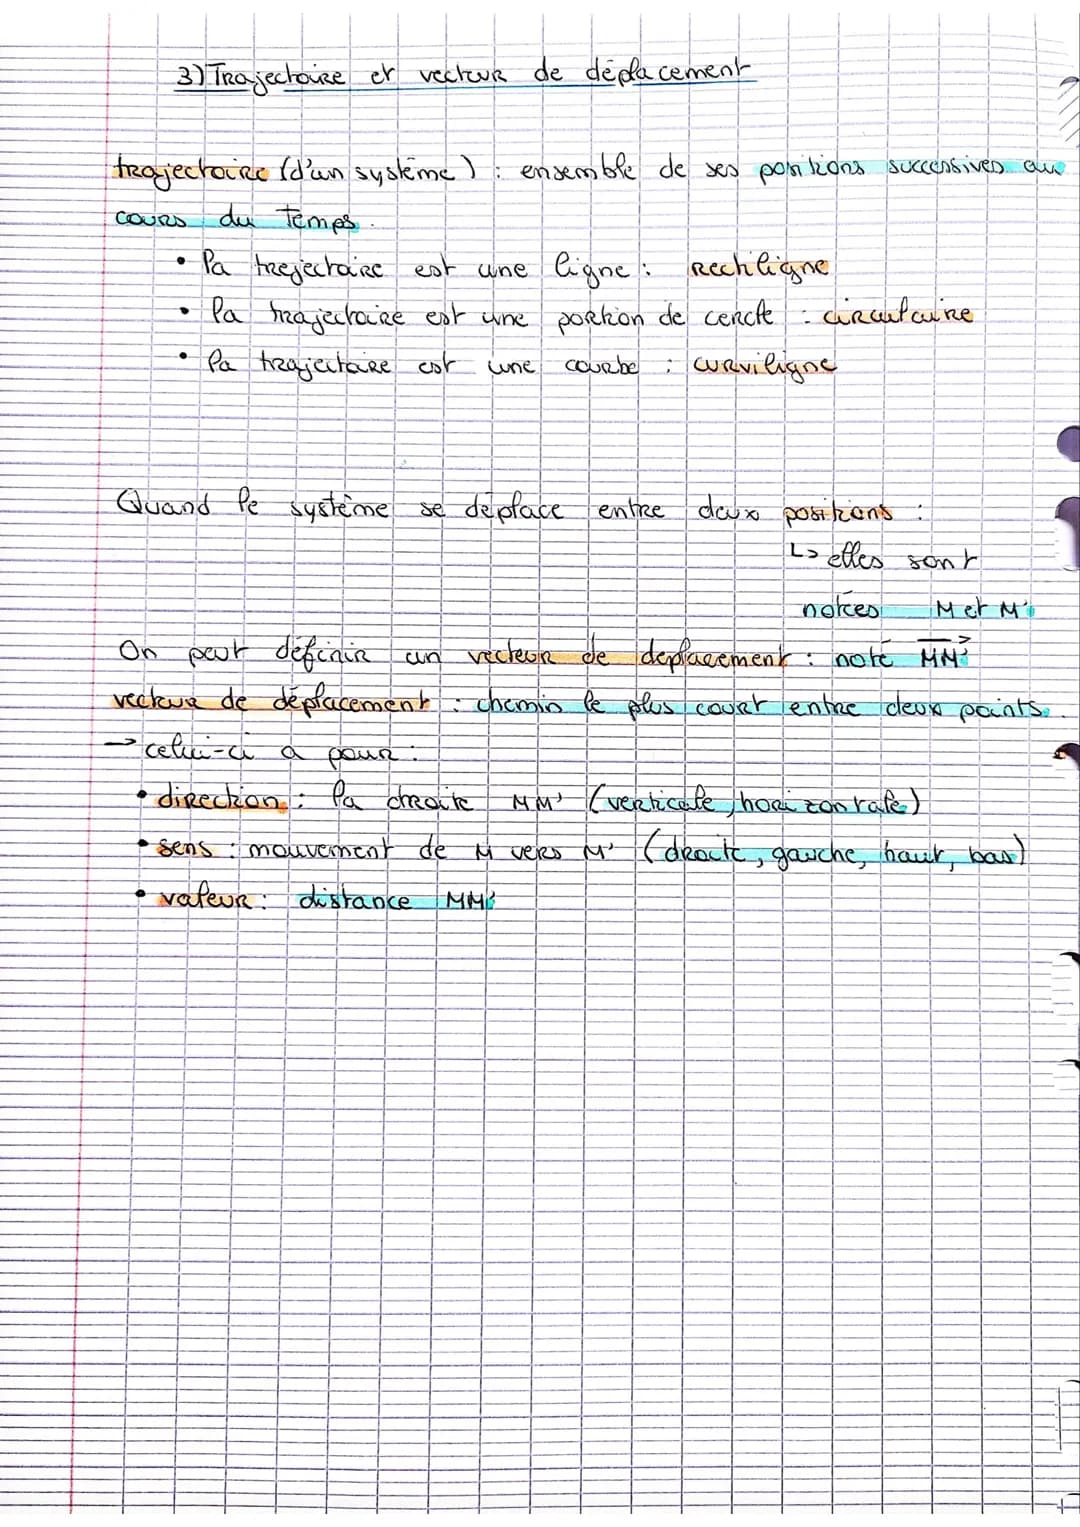 3) Trajectoire et vecteur de déplacement
trajectoire (d'un système) : ensemble de ses positions successives au
cours du temps.
• la trejectoire est une ligne : Rectiligne
• la trajectoire est une portion de cercle : circulaire
• la trajectoire est une courbe : curviligne
Quand le système se déplace entre deux positions :
↳ elles sont
notées M et M'
On peut définir un vecteur de deplacement : noté MM'
vecteur de déplacement : chemin le plus court entre deux points.
→ celui-ci a pour :
• direction : la droite MM' (verticale, horizontale)
• sens : mouvement de M vers M' (droite, gauche, haut, bas)
• valeur : distance MM'